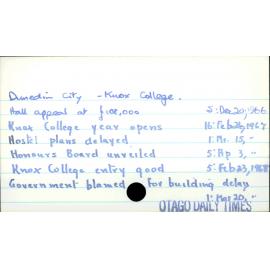 Dunedin City - Knox College.
Hall appeal at £108,000 5: Dec 20, 1966
Knox College year opens 16: Feb 26, 1967
Hostel plans delayed 1: Mr. 15, "
Honours Board unveiled 5: Ap 3, "
Knox College entry good 5: Feb 23, 1968
Government blamed for building delay
1: Mar 20, "
OTAGO DAILY TIMES